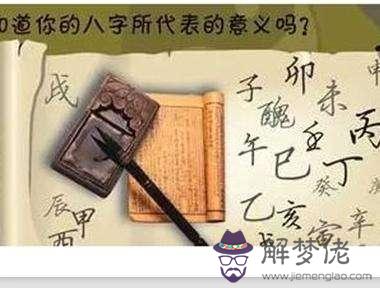 知道你的八字所代表的意义吗?
戌
子
卯
未
丙
醜
壬
午
巳
丁
乙
亥
寅
癸
辛
辰
甲
酉
解梦佬
www.jiemenglao.com